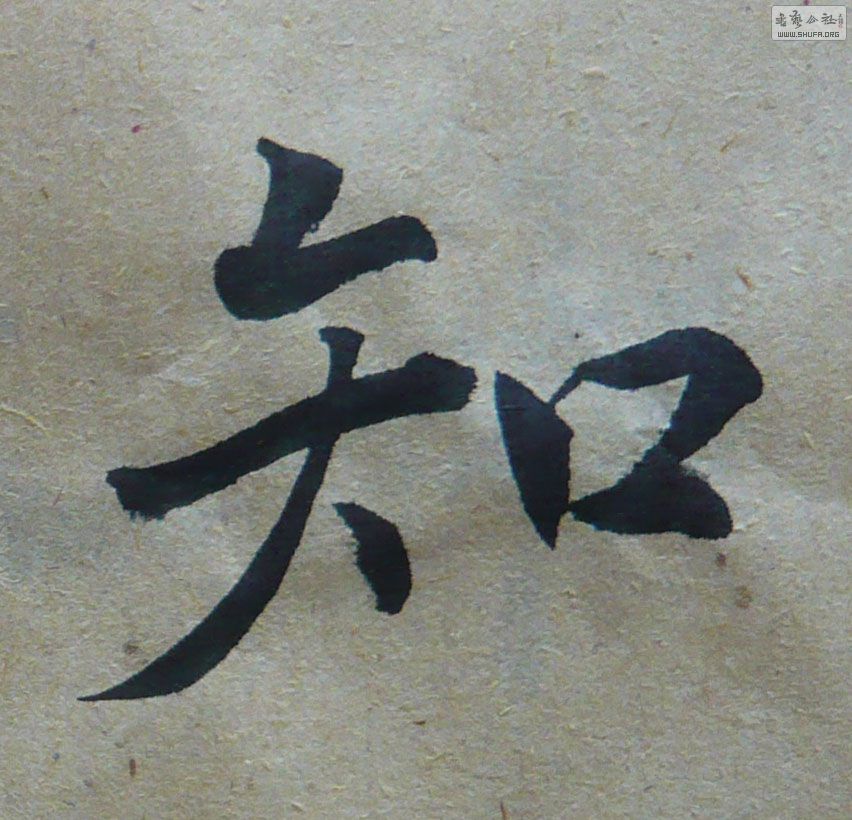 知
書艺公社
WWW.SHUFA.ORG